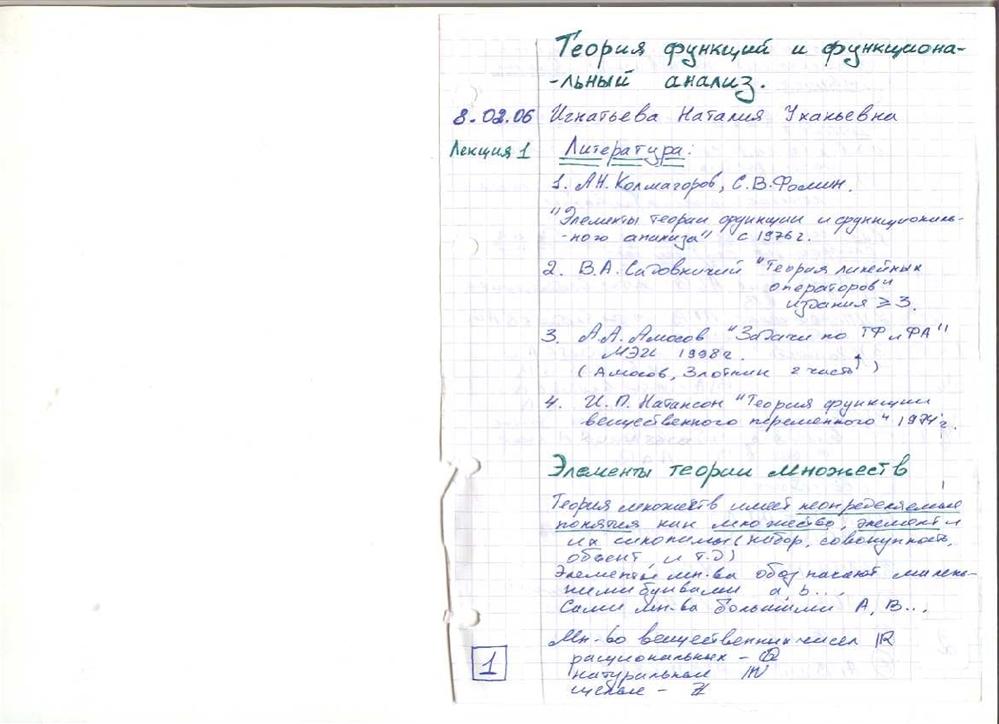 Теория функций и функциона-
-льный анализ.
8.02.06 Игнатьева Наталия Уканьевна
Лекция 1 Литература:
1. А.Н. Колмагоров, С.В. Фомин.
"Элементы теории функции и функциональ-
-ного анализа" с 1976 г.
2. В.А. Садовничий "Теория линейных
операторов"
издания ≥ 3.
3. А.А. Амосов "Задачи по ТФ и ФА"
МЭИ 1998 г.
(Амосов, Злотник 2 часть ↑)
4. И.П. Натансон "Теория функции
вещественного переменного" 1974 г.
Элементы теории множеств
Теория множеств имеет неопределяемые
понятия как множество, элемент и
их синонимы (набор, совокупность,
объект, и т.д)
Элементы мн-ва обозначают малень-
кими буквами a, b...,
Сами мн-ва большими A, B...,
Мн-во вещественных чисел ℝ
рациональных - ℚ
натуральные ℕ
целые - ℤ
1